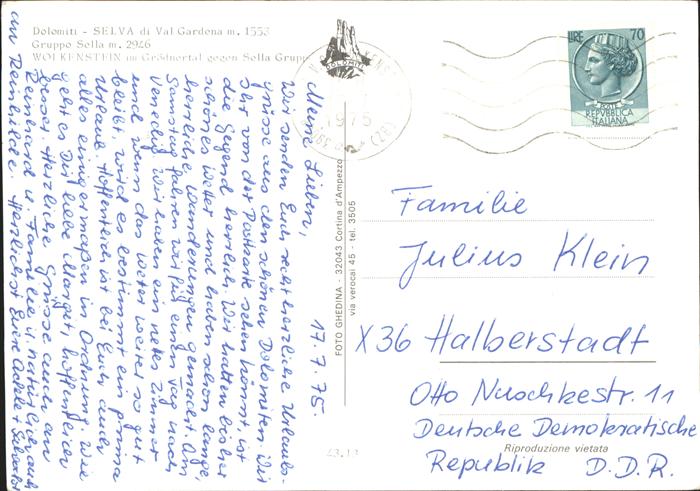 Dolomiti - SELVA di Val Gardena m. 1553
Gruppo Sella m. 2946
WOLKENSTEIN im Grödnertal gegen Sella Grupp
17.7.75.
Meine Lieben,
Wir senden Euch recht herzliche Urlaubs-
grüsse aus den schönen Dolomiten. Wie
Ihr von der Postkarte sehen könnt, ist
die Gegend herrlich. Wir hatten bisher
schönes Wetter und haben schon lange,
herrliche Wanderungen gemacht. Am
Samstag fahren wir für einen Tag nach
Venedig. Wir haben ein nettes Zimmer
und wenn das Wetter weiter so gut
bleibt, wird es bestimmt ein prima
Urlaub. Hoffentlich ist bei Euch auch
alles einigermaßen in Ordnung. Wie
geht es Dir liebe Margot, hoffentlich
besser. Herzliche Grüsse auch an
Reinhard u. Familie u. natürlich auch
an Reinhilde. Herzlichst Eure
FOTO GHEDINA - 32043 Cortina d'Ampezzo
via verocai 45 - tel. 3505
DOLOMITI
1975
(BZ)
LIRE 70
POSTE
REPVBBLICA
ITALIANA
Familie
Julius Klein
X36 Halberstadt
Otto Nuschkestr. 11
Deutsche Demokratische
Republik D.D.R.
Riproduzione vietata